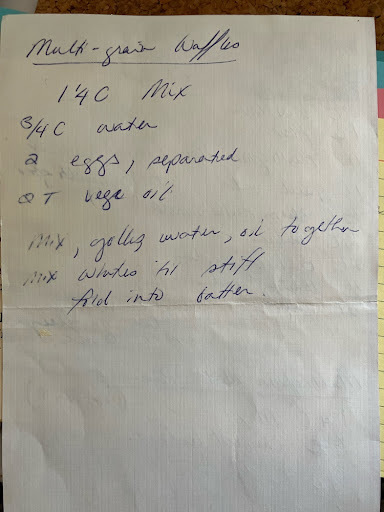 Multi-grain Waffles
1 1/4 C Mix
3/4 C water
2 eggs, separated
2 T vege oil
Mix, yolks, water, oil together
Mix whites til stiff
fold into batter.